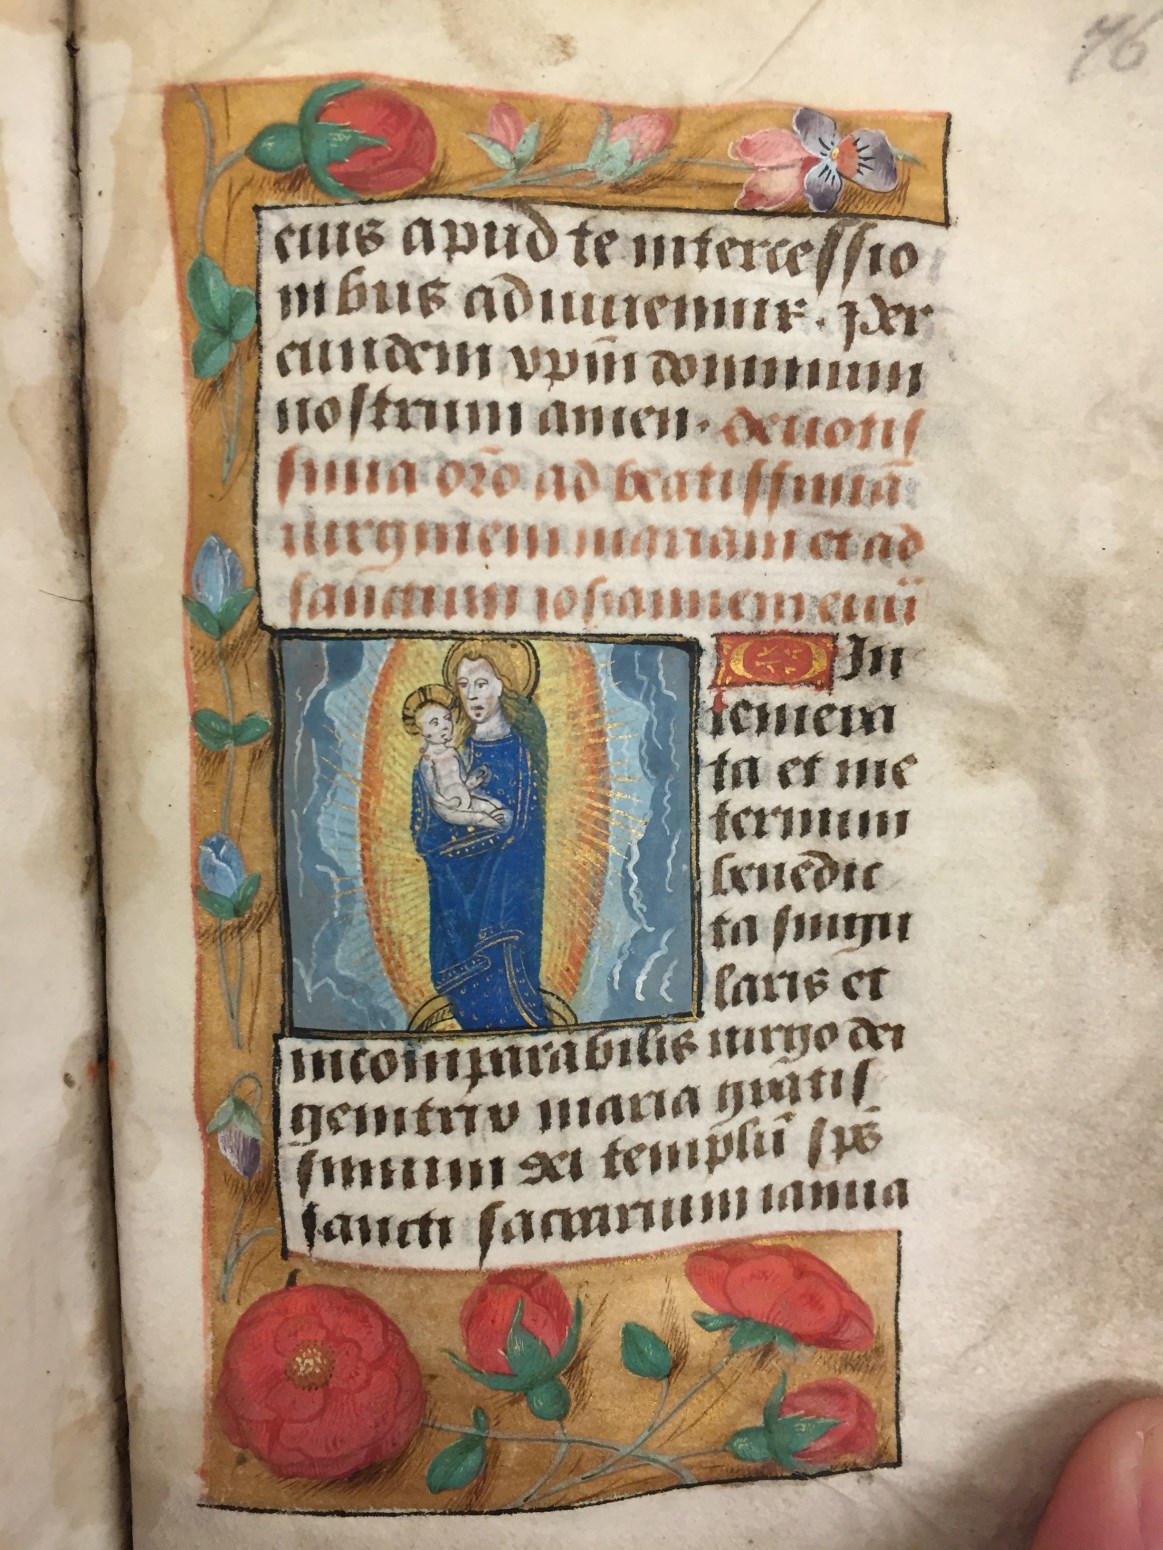 76
eius apud te intercessio
nibus adiuuemur. Per
eundem xp̄m dominum
nostrum amen. deuotis
sima or̄o ad beatissimā
uirginem mariam et ad
sanctum iohannem euū
O In
temera
ta et in e
ternum
benedic
ta singu
laris et
incomparabilis uirgo dei
genitrix maria gratis
simum dei templū sp̄s
sancti sacrarium ianua